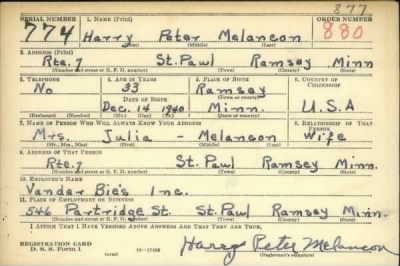 877
SERIAL NUMBER 1. NAME (Print) ORDER NUMBER
774 Harry Peter Melancon 880
(First) (Middle) (Last)
2. ADDRESS (Print)
Rte. 7 St. Paul Ramsey Minn
(Number and street or R. F. D. number) (Town) (County) (State)
3. TELEPHONE 4. AGE IN YEARS 5. PLACE OF BIRTH 6. COUNTRY OF CITIZENSHIP
No 33 Ramsey
DATE OF BIRTH
Dec. 14 1940 Minn. U.S.A
(Exchange) (Number) (Mo.) (Day) (Yr.) (State or country)
7. NAME OF PERSON WHO WILL ALWAYS KNOW YOUR ADDRESS 8. RELATIONSHIP OF THAT PERSON
Mrs. Julia - Melancon Wife
(Mr., Mrs., Miss) (First) (Middle) (Last)
9. ADDRESS OF THAT PERSON
Rte. 7 St. Paul Ramsey Minn.
(Number and street or R. F. D. number) (Town) (County) (State)
10. EMPLOYER'S NAME
Vander Bie's Inc.
11. PLACE OF EMPLOYMENT OR BUSINESS
546 Partridge St. St. Paul Ramsey Minn.
(Number and street or R. F. D. number) (Town) (County) (State)
I AFFIRM THAT I HAVE VERIFIED ABOVE ANSWERS AND THAT THEY ARE TRUE.
REGISTRATION CARD
D. S. S. Form 1 (over) Harry Peter Melancon
(Registrant's signature)